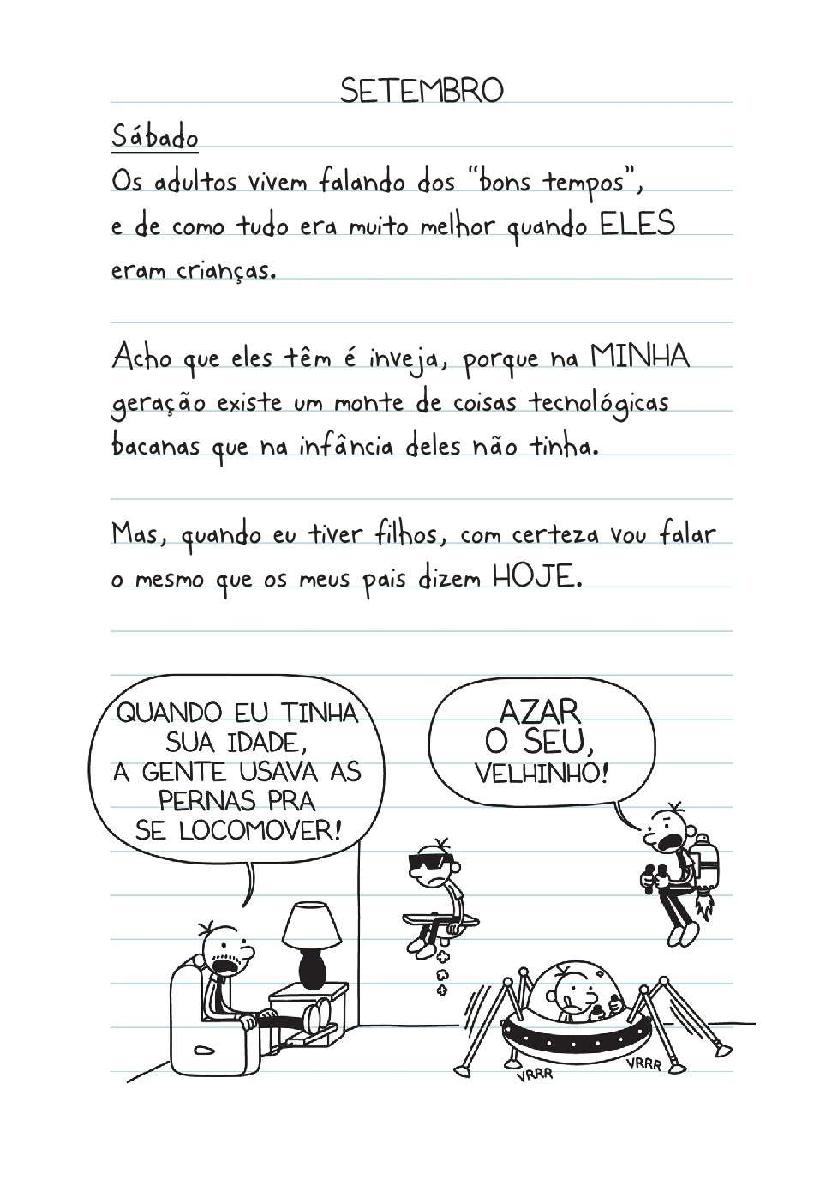 SETEMBRO
Sábado
Os adultos vivem falando dos "bons tempos",
e de como tudo era muito melhor quando ELES
eram crianças.
Acho que eles têm é inveja, porque na MINHA
geração existe um monte de coisas tecnológicas
bacanas que na infância deles não tinha.
Mas, quando eu tiver filhos, com certeza vou falar
o mesmo que os meus pais dizem HOJE.
QUANDO EU TINHA
SUA IDADE,
A GENTE USAVA AS
PERNAS PRA
SE LOCOMOVER!
AZAR
O SEU,
VELHINHO!
VRRR
VRRR